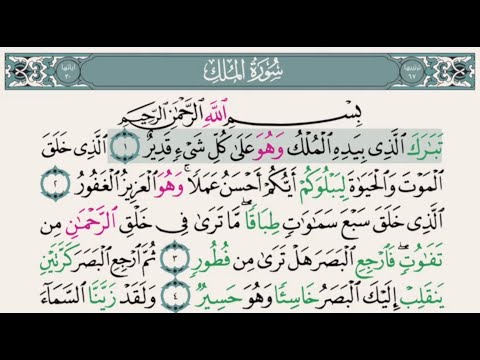 ترتيبها ٦٧
سُورَةُ المُلْكِ
آياتها ٣٠
بِسْمِ اللَّهِ الرَّحْمَٰنِ الرَّحِيمِ
تَبَارَكَ الَّذِي بِيَدِهِ الْمُلْكُ وَهُوَ عَلَىٰ كُلِّ شَيْءٍ قَدِيرٌ ١ الَّذِي خَلَقَ
الْمَوْتَ وَالْحَيَاةَ لِيَبْلُوَكُمْ أَيُّكُمْ أَحْسَنُ عَمَلًا ۚ وَهُوَ الْعَزِيزُ الْغَفُورُ ٢
الَّذِي خَلَقَ سَبْعَ سَمَاوَاتٍ طِبَاقًا ۖ مَّا تَرَىٰ فِي خَلْقِ الرَّحْمَٰنِ مِن
تَفَاوُتٍ ۖ فَارْجِعِ الْبَصَرَ هَلْ تَرَىٰ مِن فُطُورٍ ٣ ثُمَّ ارْجِعِ الْبَصَرَ كَرَّتَيْنِ
يَنقَلِبْ إِلَيْكَ الْبَصَرُ خَاسِئًا وَهُوَ حَسِيرٌ ٤ وَلَقَدْ زَيَّنَّا السَّمَاءَ